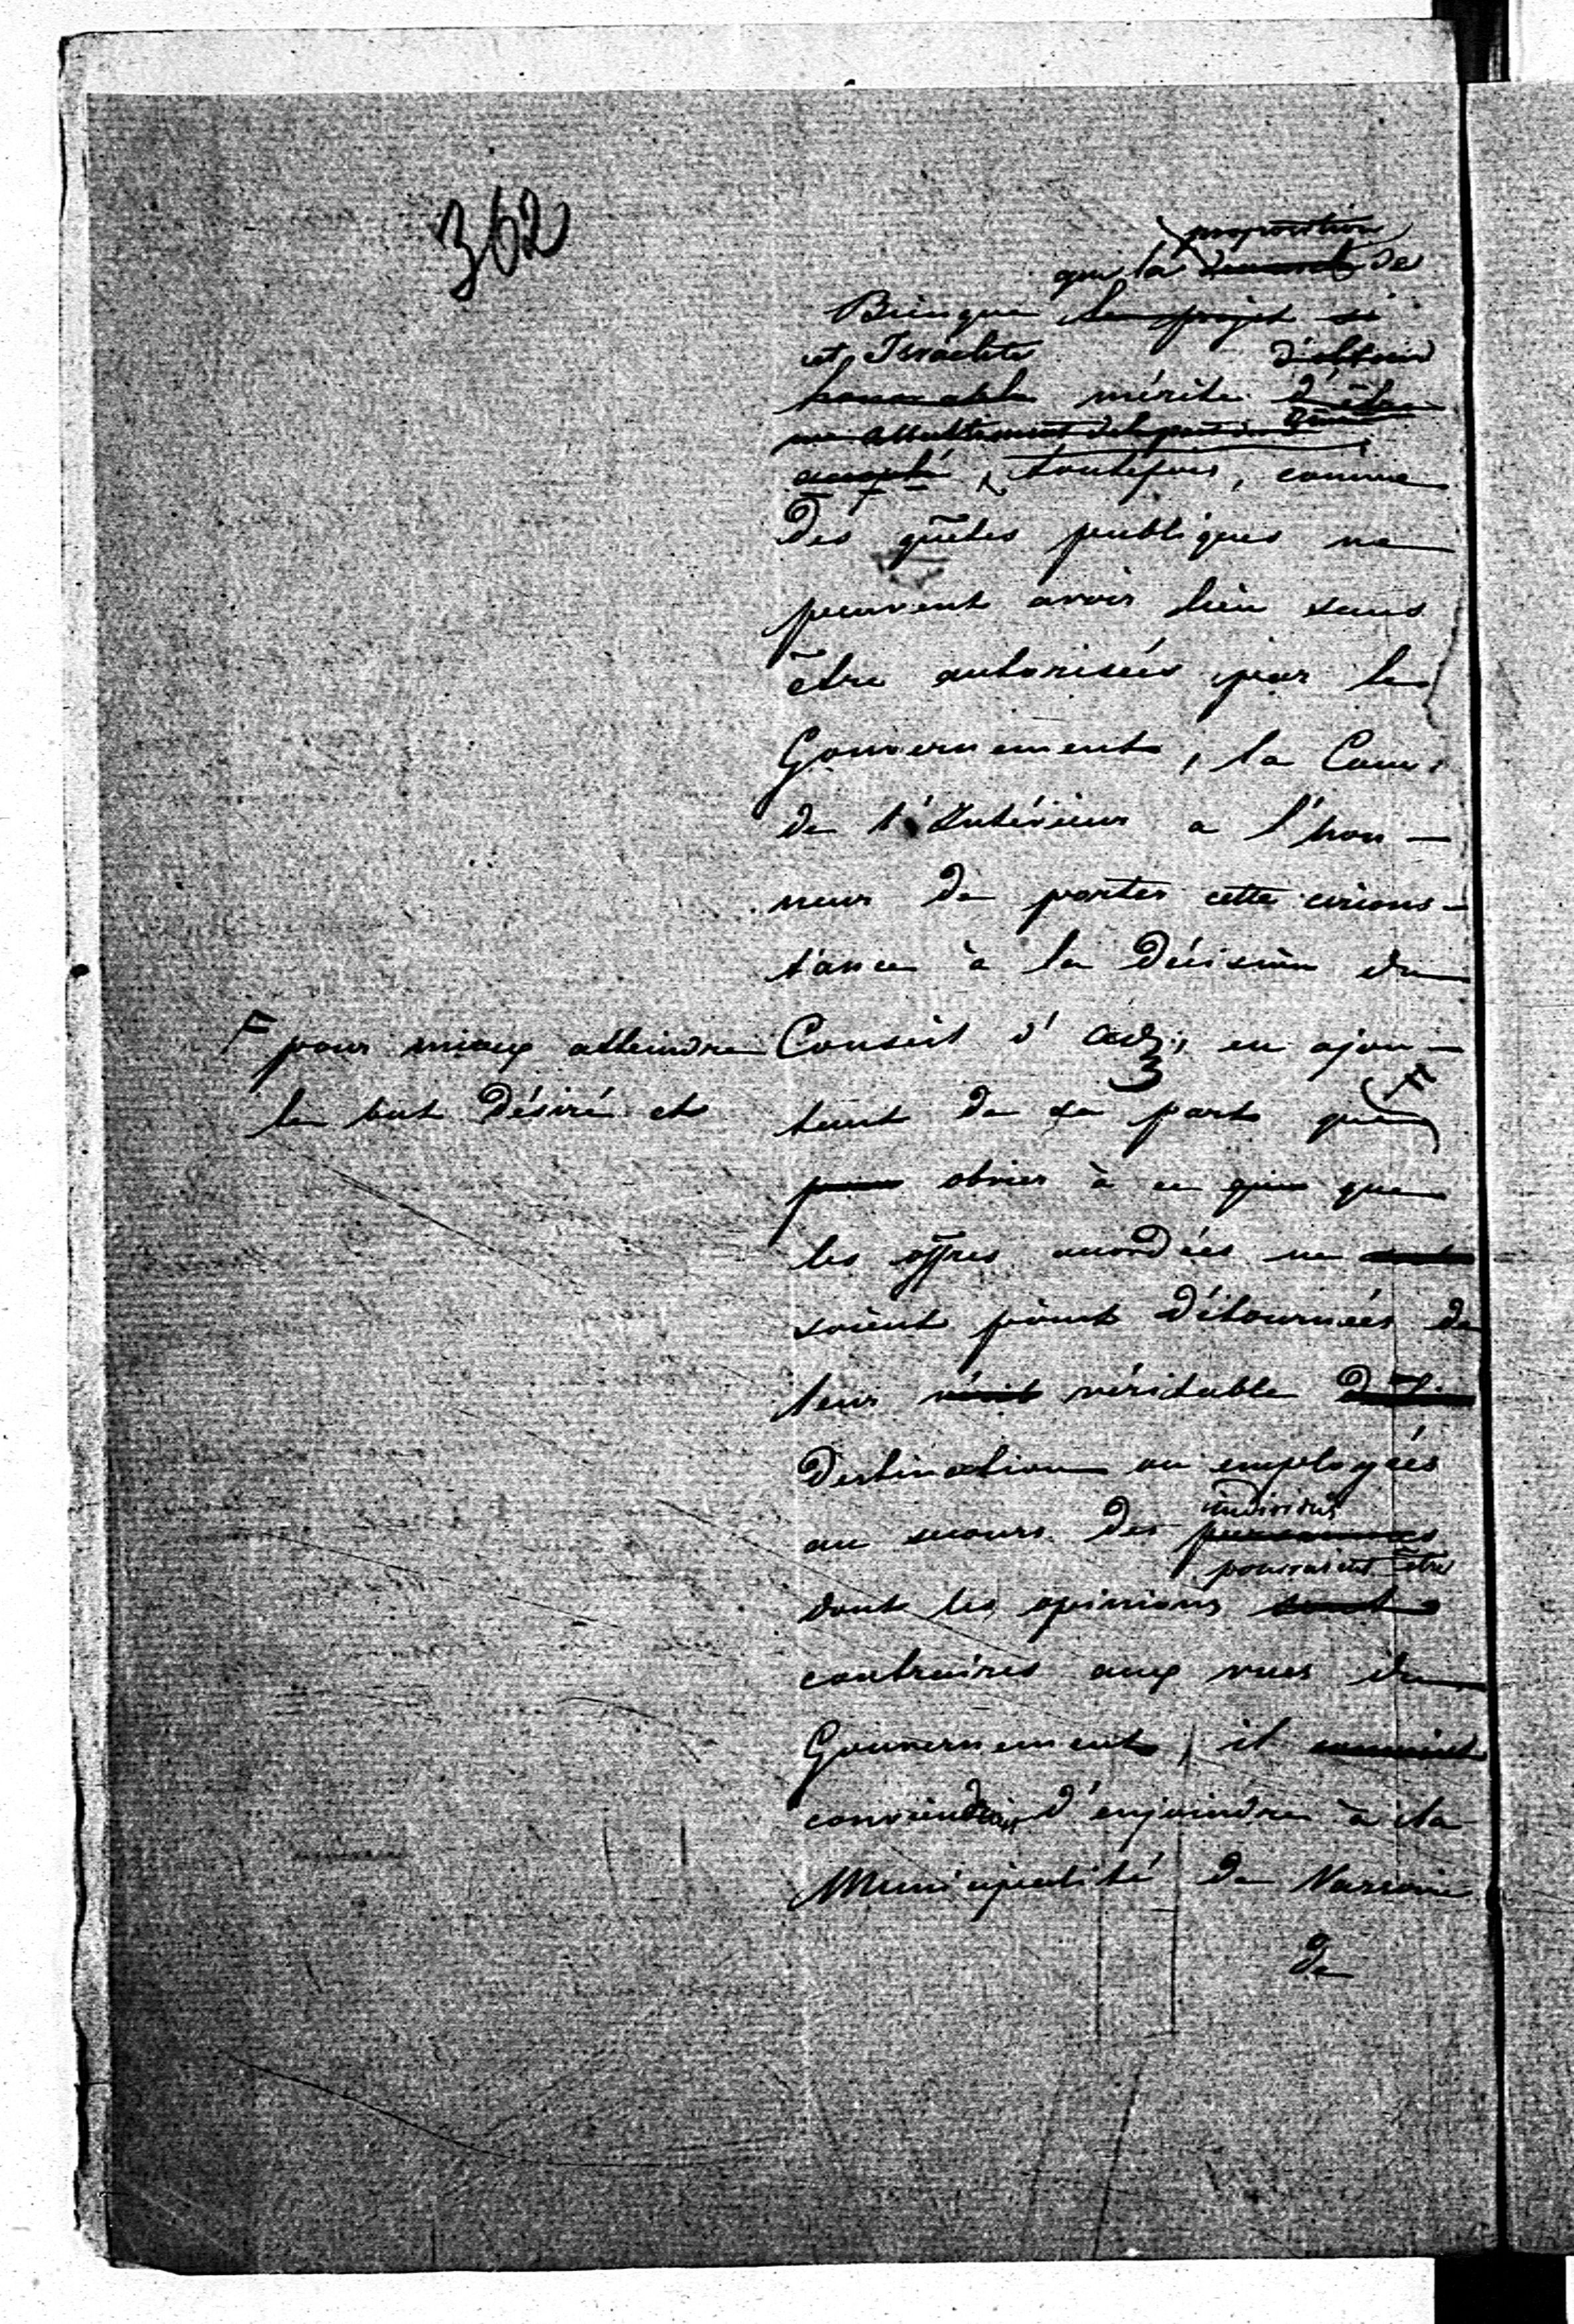 362
proposition
que la demande de
Bienque le projet si
et Israelite d'obtenir
honorable mérite d'être
accepté, toutefois, comme
des quêtes publiques ne
peuvent avoir lieu sans
être autorisées par le
Gouvernement, la Com:
de l'Intérieur a l'hon-
neur de porter cette circons-
tance à la décision du
Conseil d'adm; en ajou-
tant de sa part que F
F pour mieux atteindre
le but désiré et
pour obvier à ce que
les offres accordées ne
soient point détournées de
leur vérit véritable
destination ou employées
au secours des personnes
individus
pourraient être
dont les opinions sont
contraires aux vues du
Gouvernement, il convient
conviendrait d'enjoindre à la
Municipalité de Varsovie
de